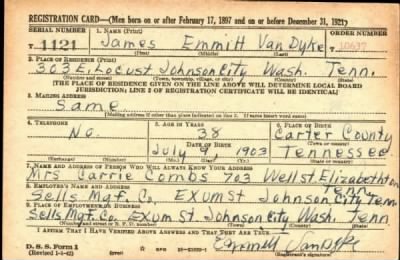 REGISTRATION CARD—(Men born on or after February 17, 1897 and on or before December 31, 1921)
SERIAL NUMBER 1. NAME (Print) ORDER NUMBER
T 1121 James Emmitt Van Dyke T 10637
(First) (Middle) (Last)
2. PLACE OF RESIDENCE (Print)
303 E. Locust Johnson City Wash. Tenn.
(Number and street) (Town, township, village, or city) (County) (State)
[THE PLACE OF RESIDENCE GIVEN ON THE LINE ABOVE WILL DETERMINE LOCAL BOARD
JURISDICTION; LINE 2 OF REGISTRATION CERTIFICATE WILL BE IDENTICAL]
3. MAILING ADDRESS
Same
[Mailing address if other than place indicated on line 2. If same insert word same]
4. TELEPHONE 5. AGE IN YEARS 6. PLACE OF BIRTH
No. 38 Carter County
DATE OF BIRTH (Town or county)
July 9 1903 Tennessee
(Exchange) (Number) (Mo.) (Day) (Yr.) (State or country)
7. NAME AND ADDRESS OF PERSON WHO WILL ALWAYS KNOW YOUR ADDRESS
Mrs Carrie Combs 703 Well st Elizabethton
Tenn
8. EMPLOYER'S NAME AND ADDRESS
Sells Mgf. Co. Exum St Johnson City Tenn
9. PLACE OF EMPLOYMENT OR BUSINESS
Sells Mgf. Co. Exum St. Johnson City Wash. Tenn
(Number and street or R. F. D. number) (Town) (County) (State)
I AFFIRM THAT I HAVE VERIFIED ABOVE ANSWERS AND THAT THEY ARE TRUE.
D. S. S. Form 1
(Revised 1-1-42) Emmitt VanDyke
(Registrant's signature)